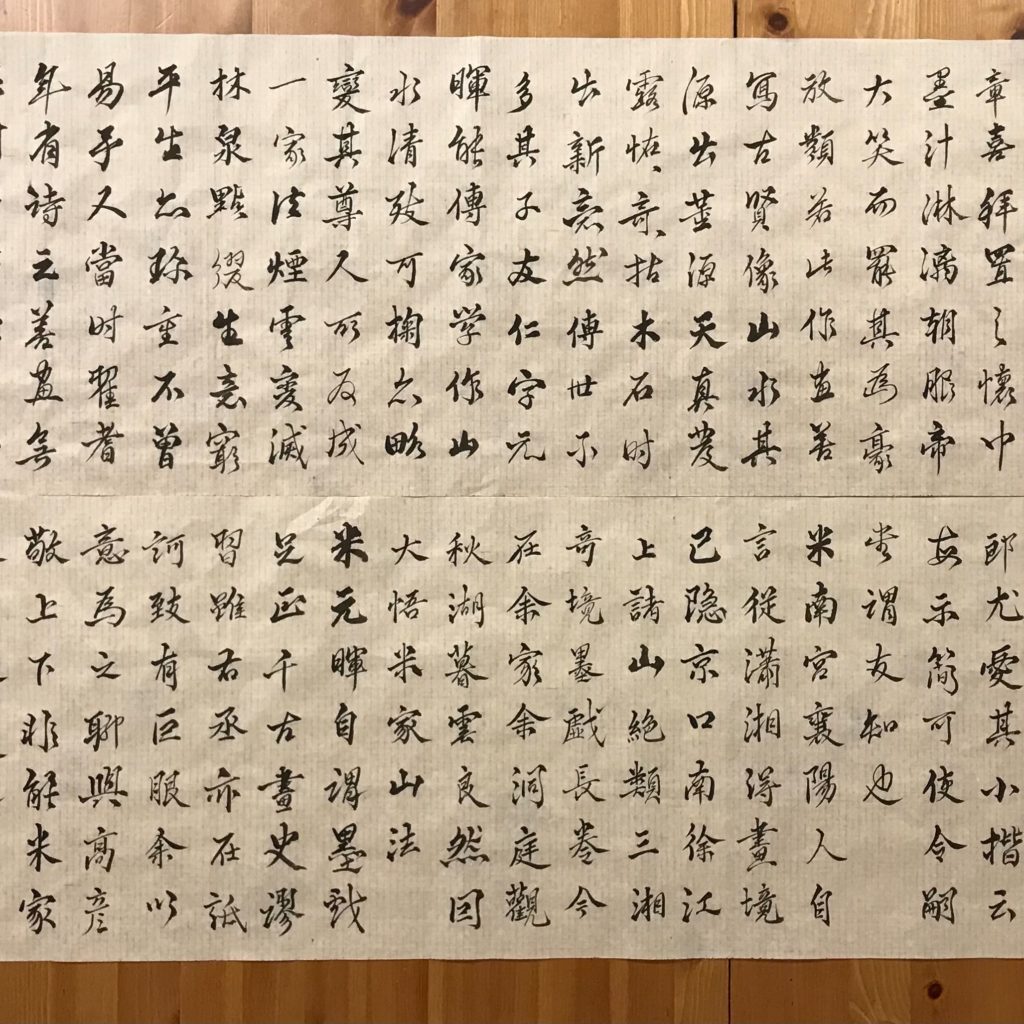 章喜拜置之懷中
墨汁淋漓朝服帝
大笑而罷其為豪
放類若此作畫善
寫古賢像山水其
源出董源天真發
露怪奇枯木石时
出新意然傳世不
多其子友仁字元
暉能傳家学作山
水清致可掬亦略
變其尊人所為成
一家法煙雲變滅
林泉點綴生意窮
平生亦珍重不曾
易于人當时翟耆
年有诗云善畫無
郎尤愛其小楷云
每示簡可使令嗣
書謂友知也
米南宮襄陽人自
言從瀟湘得畫境
已隐京口南徐江
上諸山絕類三湘
奇境墨戲長卷今
在余家余洞庭觀
秋湖暮雲良然因
大悟米家山法
米元暉自謂墨戲
足正千古畫史謬
習雖右丞亦在詆
訶致有巨眼余以
意為之聊與高彦
敬上下非能米家